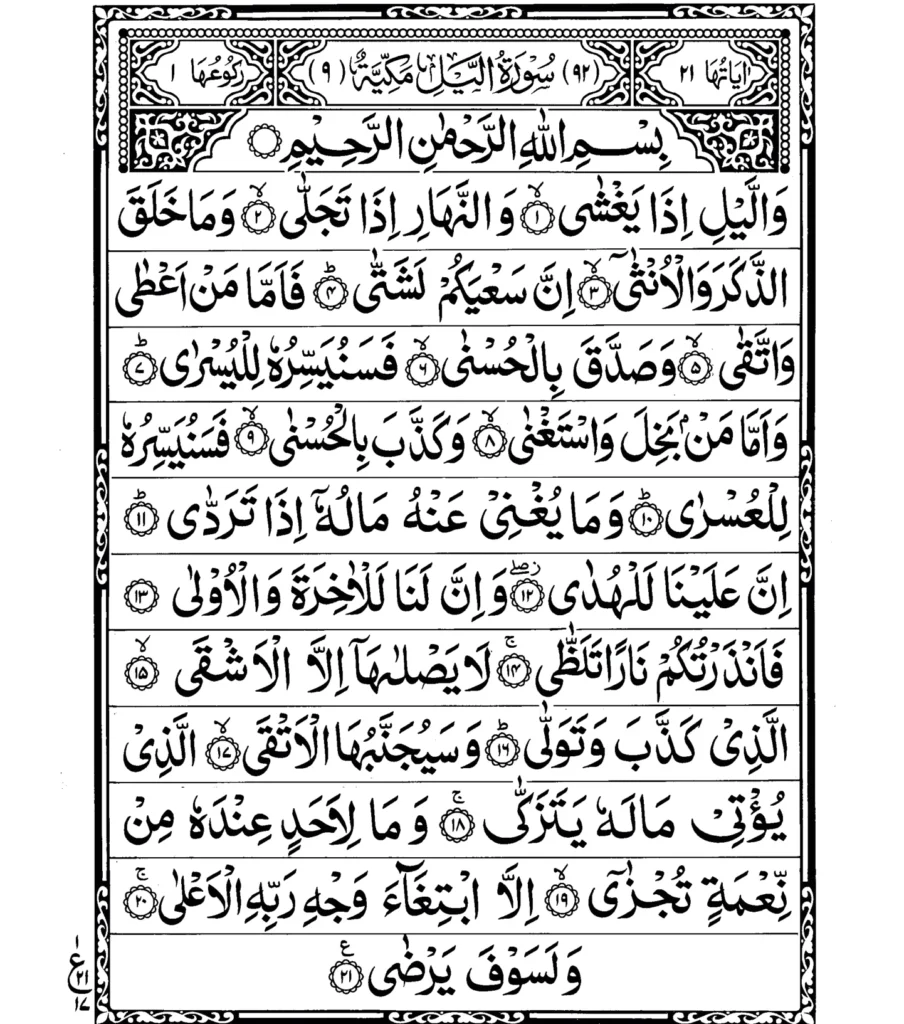 اٰيَاتُهَا ٢١ (٩٢) سُوْرَةُ الَّيْلِ مَكِّيَّةٌ (٩) رُكُوْعُهَا ١
بِسْمِ اللهِ الرَّحْمٰنِ الرَّحِيْمِ
وَالَّيْلِ اِذَا يَغْشٰى ۙ١ وَالنَّهَارِ اِذَا تَجَلّٰى ۙ٢ وَمَا خَلَقَ
الذَّكَرَ وَالْاُنْثٰىٓ ۙ٣ اِنَّ سَعْيَكُمْ لَشَتّٰى ؕ٤ فَاَمَّا مَنْ اَعْطٰى
وَاتَّقٰى ۙ٥ وَصَدَّقَ بِالْحُسْنٰى ۙ٦ فَسَنُيَسِّرُهٗ لِلْيُسْرٰى ؕ٧
وَاَمَّا مَنْۢ بَخِلَ وَاسْتَغْنٰى ۙ٨ وَكَذَّبَ بِالْحُسْنٰى ۙ٩ فَسَنُيَسِّرُهٗ
لِلْعُسْرٰى ؕ١٠ وَمَا يُغْنِيْ عَنْهُ مَالُهٗٓ اِذَا تَرَدّٰى ؕ١١
اِنَّ عَلَيْنَا لَلْهُدٰى ۖز١٢ وَاِنَّ لَنَا لَلْاٰخِرَةَ وَالْاُوْلٰى ١٣
فَاَنْذَرْتُكُمْ نَارًا تَلَظّٰى ۚ١٤ لَا يَصْلٰىهَآ اِلَّا الْاَشْقَى ۙ١٥
الَّذِيْ كَذَّبَ وَتَوَلّٰى ؕ١٦ وَسَيُجَنَّبُهَا الْاَتْقَى ۙ١٧ الَّذِيْ
يُؤْتِيْ مَالَهٗ يَتَزَكّٰى ۚ١٨ وَمَا لِاَحَدٍ عِنْدَهٗ مِنْ
نِّعْمَةٍ تُجْزٰٓى ۙ١٩ اِلَّا ابْتِغَآءَ وَجْهِ رَبِّهِ الْاَعْلٰى ۚ٢٠
وَلَسَوْفَ يَرْضٰى ع٢١
١
ع
٢١
١٧